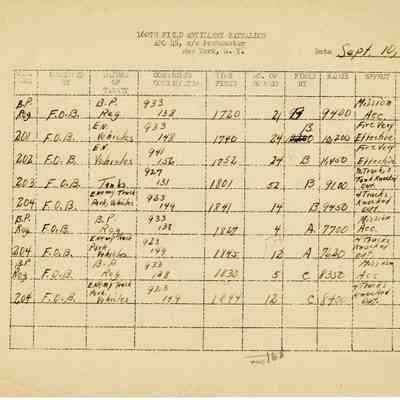 160TH FIELD ARTILLERY BATTALION
APO 45, c/o Postmaster
New York, N. Y.
Date Sept. 10,
OBSERVED BY NATURE OF TARGET COORDINATES CONCENTRATION TIME FIRED NO. OF ROUNDS FIRED BY RANGE EFFECT
B.P. Reg F.O.B. B.P. Reg 933 138 1720 21 B 9400 Mission Acc.
201 F.O.B. EN. Vehicles 933 148 1740 24 B 10,200 Fire Very Effective
202 F.O.B. EN Vehicles 941 156 1752 24 B 10,450 Fire Very Effective
203 F.O.B. Tanks 927 131 1801 52 B 9100 Trucks Tank Knocked out.
204 F.O.B. Enemy Truck Park, Vehicles 923 149 1841 14 B 9450 4 Trucks Knocked out
B.P. Reg F.O.B. B.P. Reg. 933 138 1827 4 A 7700 Mission Acc.
204 F.O.B. Enemy Truck Park, Vehicles 923 149 1845 12 A 7620 4 Trucks Knocked out.
B.P. Reg F.O.B. B.P. Reg 933 138 1830 5 C 8350 Mission Acc.
204 F.O.B. Enemy Truck Park. Vehicles 923 149 1844 12 C 8400 4 Trucks Knocked out.
168